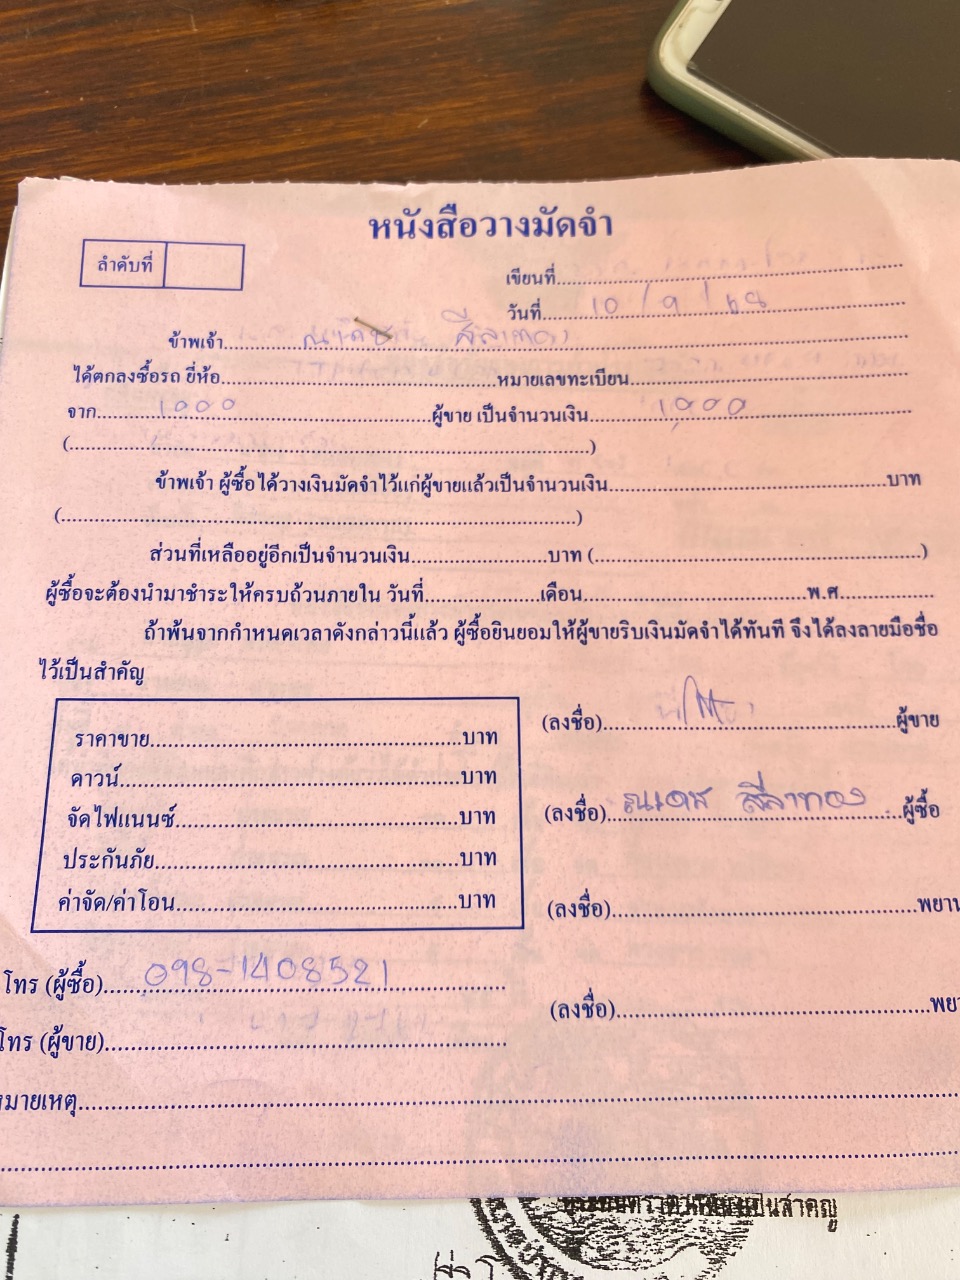 หนังสือวางมัดจำ
ลำดับที่
เขียนที่
วันที่ 10 / 9 / 68
ข้าพเจ้า สีลาทอง
ได้ตกลงซื้อรถ ยี่ห้อ หมายเลขทะเบียน
จาก 1000 ผู้ขาย เป็นจำนวนเงิน 1,000
( )
ข้าพเจ้า ผู้ซื้อได้วางเงินมัดจำไว้แก่ผู้ขายแล้วเป็นจำนวนเงิน บาท
( )
ส่วนที่เหลืออยู่อีกเป็นจำนวนเงิน บาท ( )
ผู้ซื้อจะต้องนำมาชำระให้ครบถ้วนภายใน วันที่ เดือน พ.ศ.
ถ้าพ้นจากกำหนดเวลาดังกล่าวนี้แล้ว ผู้ซื้อยินยอมให้ผู้ขายริบเงินมัดจำได้ทันที จึงได้ลงลายมือชื่อ
ไว้เป็นสำคัญ
ราคาขาย บาท
ดาวน์ บาท
จัดไฟแนนซ์ บาท
ประกันภัย บาท
ค่าจัด/ค่าโอน บาท
(ลงชื่อ) ผู้ขาย
(ลงชื่อ) ณเดช สีลาทอง ผู้ซื้อ
(ลงชื่อ) พยาน
(ลงชื่อ) พย
โทร (ผู้ซื้อ) 098-1408521
โทร (ผู้ขาย)
หมายเหตุ